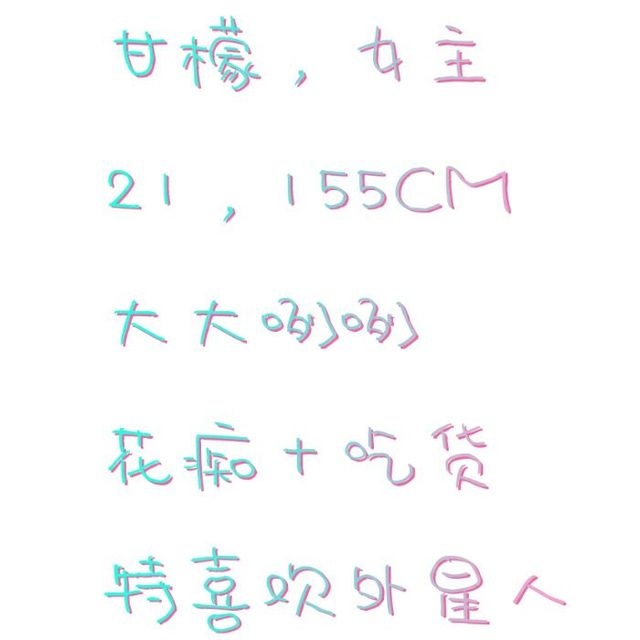 甘檬，女主
21，155CM
大大咧咧
花痴+吃货
特喜欢外星人